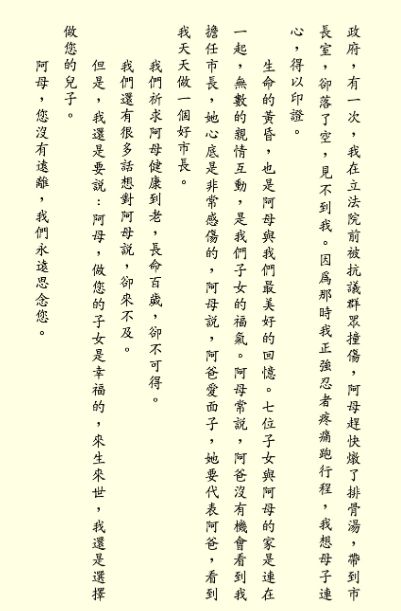 政府，有一次，我在立法院前被抗議群眾撞傷，阿母趕快燉了排骨湯，帶到市
長室，卻落了空，見不到我。因為那時我正強忍者疼痛跑行程，我想母子連
心，得以印證。
生命的黃昏，也是阿母與我們最美好的回憶。七位子女與阿母的家是連在
一起，無數的親情互動，是我們子女的福氣。阿母常說，阿爸沒有機會看到我
擔任市長，她心底是非常感傷的，阿母說，阿爸愛面子，她要代表阿爸，看到
我天天做一個好市長。
我們祈求阿母健康到老，長命百歲，卻不可得。
我們還有很多話想對阿母說，卻來不及。
但是，我還是要說：阿母，做您的子女是幸福的，來生來世，我還是選擇
做您的兒子。
阿母，您沒有遠離，我們永遠思念您。